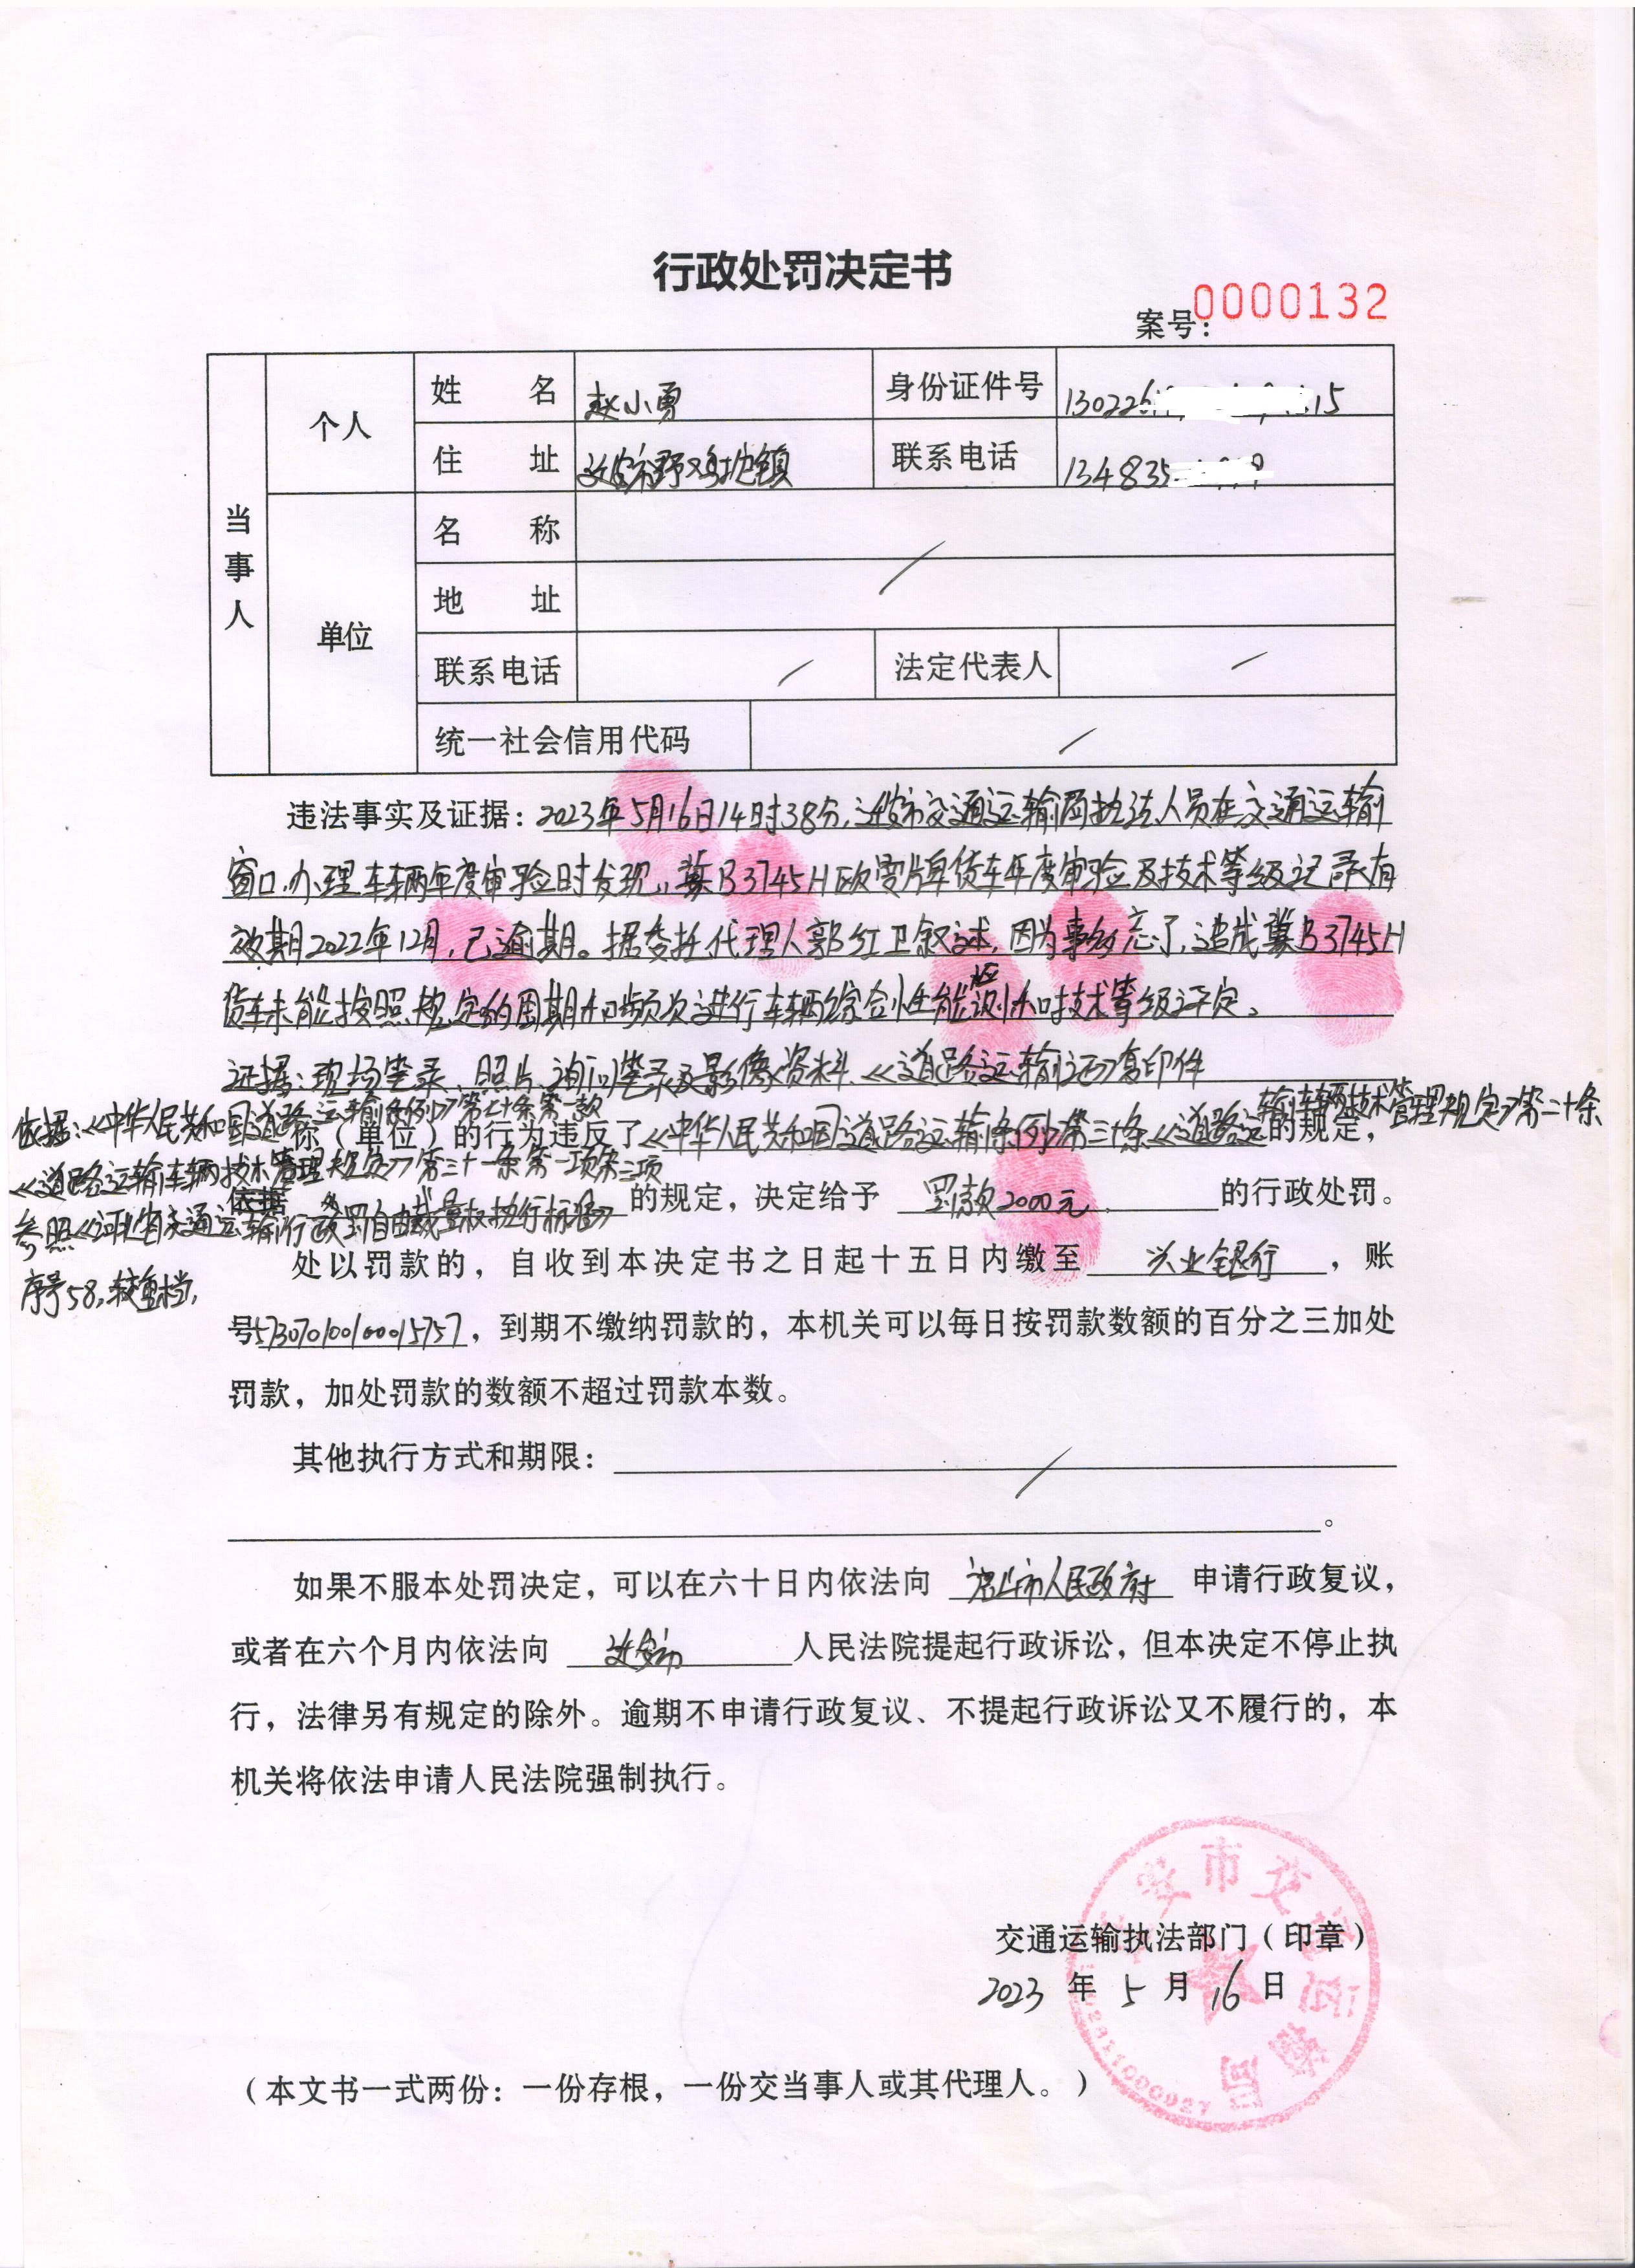 行政处罚决定书
案号：0000132
当事人
个人
姓 名 赵小勇 身份证件号 130226 15
住 址 迁安市野鸡坨镇 联系电话 134835
单位
名 称 /
地 址
联系电话 / 法定代表人 /
统一社会信用代码 /
违法事实及证据：2023年5月16日14时38分，迁安市交通运输局执法人员在交通运输
窗口办理车辆年度审验时发现，冀B3745H欧曼牌货车年度审验及技术等级记录有
效期2022年12月，已逾期。据委托代理人郭红卫叙述，因为事多忘了，造成冀B3745H
货车未能按照规定的周期和频次进行车辆综合性能检测和技术等级评定。
证据：现场笔录、照片、询问笔录及影像资料、《道路运输证》复印件
你（单位）的行为违反了《中华人民共和国道路运输条例》第三十条《道路运输车辆技术管理规定》第二十条的规定，
依据：《中华人民共和国道路运输条例》第七十条第一款
《道路运输车辆技术管理规定》第三十一条第一项第三项
参照《河北省交通运输行政处罚自由裁量权执行标准》
序号58，较重档，
依据 的规定，决定给予 罚款2000元 的行政处罚。
处以罚款的，自收到本决定书之日起十五日内缴至 兴业银行 ，账
号573070100100015757，到期不缴纳罚款的，本机关可以每日按罚款数额的百分之三加处
罚款，加处罚款的数额不超过罚款本数。
其他执行方式和期限： /
。
如果不服本处罚决定，可以在六十日内依法向 唐山市人民政府 申请行政复议，
或者在六个月内依法向 迁安市 人民法院提起行政诉讼，但本决定不停止执
行，法律另有规定的除外。逾期不申请行政复议、不提起行政诉讼又不履行的，本
机关将依法申请人民法院强制执行。
交通运输执法部门（印章）
2023 年 5 月 16 日
（本文书一式两份：一份存根，一份交当事人或其代理人。）